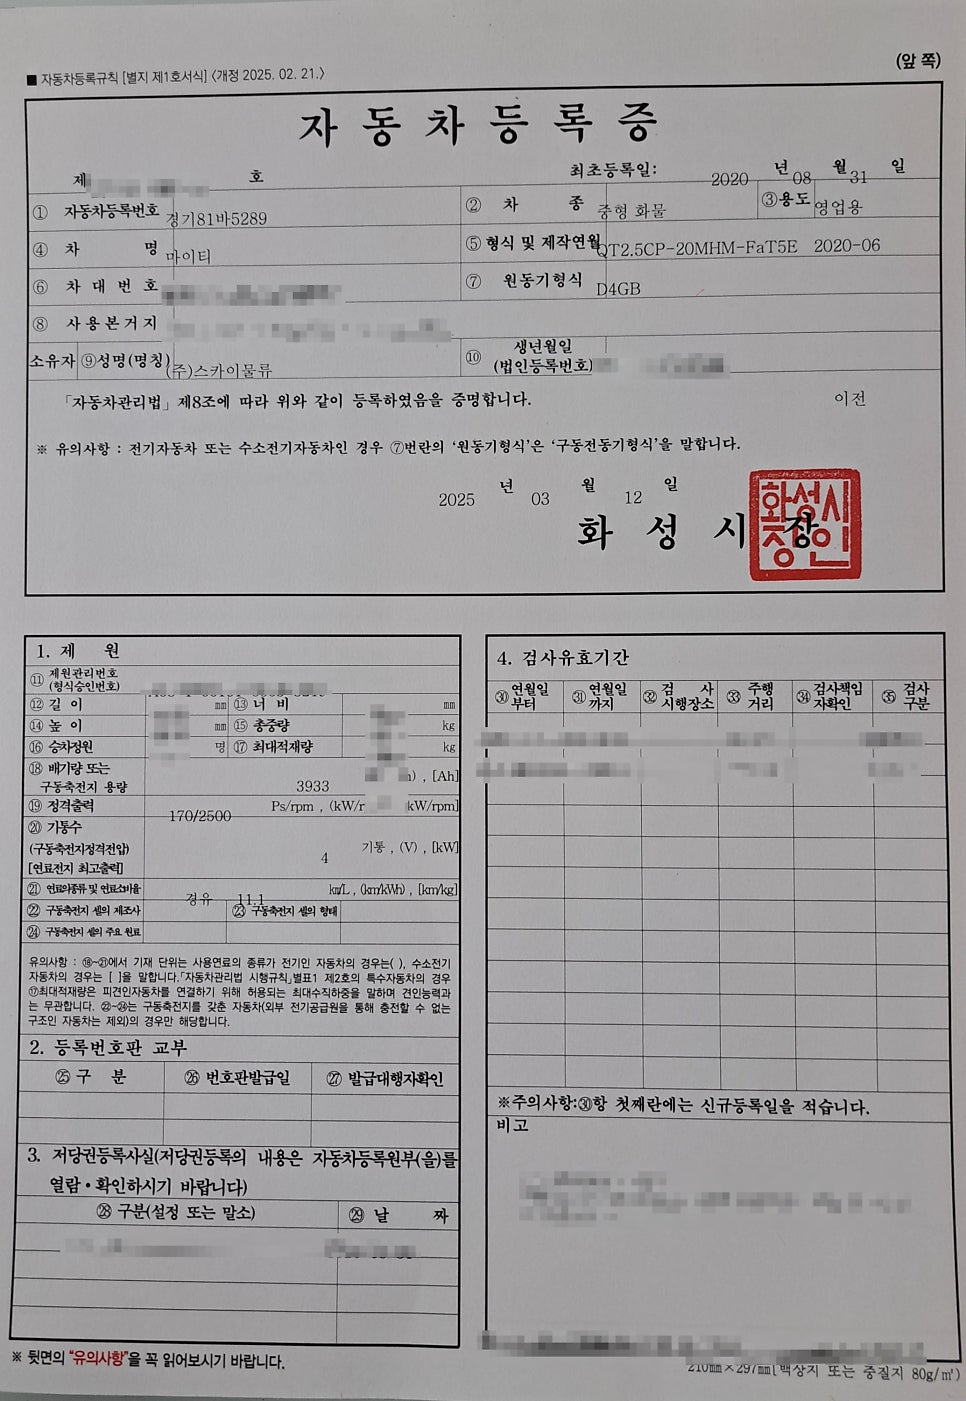 (앞 쪽)
■ 자동차등록규칙 [별지 제1호서식] <개정 2025. 02. 21.>
자 동 차 등 록 증
제 호 최초등록일: 2020 년 08 월 31 일
① 자동차등록번호 경기81바5289 ② 차 종 중형 화물 ③용도 영업용
④ 차 명 마이티 ⑤ 형식 및 제작연월 QT2.5CP-20MHM-FaT5E 2020-06
⑥ 차 대 번 호 ⑦ 원동기형식 D4GB
⑧ 사 용 본 거 지
소유자 ⑨성명(명칭) (주)스카이물류 ⑩ 생년월일
(법인등록번호)
「자동차관리법」 제8조에 따라 위와 같이 등록하였음을 증명합니다. 이전
※ 유의사항 : 전기자동차 또는 수소전기자동차인 경우 ⑦번란의 '원동기형식'은 '구동전동기형식'을 말합니다.
2025 년 03 월 12 일
화 성 시 장
화성시장인
1. 제 원
⑪ 제원관리번호
(형식승인번호)
⑫ 길 이 mm ⑬ 너 비 mm
⑭ 높 이 mm ⑮ 총중량 kg
⑯ 승차정원 명 ⑰ 최대적재량 kg
⑱ 배기량 또는
구동축전지 용량 3933 , [Ah]
⑲ 정격출력 170/2500 Ps/rpm , (kW/r kW/rpm]
⑳ 기통수
(구동축전지정격전압) 4 기통 , (V) , [kW]
[연료전지 최고출력]
㉑ 연료의종류 및 연료소비율 경유 11.1 km/L , (km/kWh) , [km/kg]
㉒ 구동축전지 셀의 제조사 ㉓ 구동축전지 셀의 형태
㉔ 구동축전지 셀의 주요 원료
유의사항 : ⑱~㉑에서 기재 단위는 사용연료의 종류가 전기인 자동차의 경우는( ), 수소전기
자동차의 경우는 [ ]을 말합니다.「자동차관리법 시행규칙」별표1 제2호의 특수자동차의 경우
⑰최대적재량은 피견인자동차를 연결하기 위해 허용되는 최대수직하중을 말하며 견인능력과
는 무관합니다. ㉒~㉔는 구동축전지를 갖춘 자동차(외부 전기공급원을 통해 충전할 수 없는
구조인 자동차는 제외)의 경우만 해당합니다.
2. 등록번호판 교부
㉕ 구 분 ㉖ 번호판발급일 ㉗ 발급대행자확인
3. 저당권등록사실(저당권등록의 내용은 자동차등록원부(을)를
열람·확인하시기 바랍니다)
㉘ 구분(설정 또는 말소) ㉙ 날 짜
4. 검사유효기간
㉚ 연월일 부터 ㉛ 연월일 까지 ㉜ 검 사 시행장소 ㉝ 주행 거리 ㉞ 검사책임 자확인 ㉟ 검사 구분
※주의사항:㉚항 첫째란에는 신규등록일을 적습니다.
비고
※ 뒷면의 "유의사항"을 꼭 읽어보시기 바랍니다.
210mm×297mm[백상지 또는 중질지 80g/㎡)